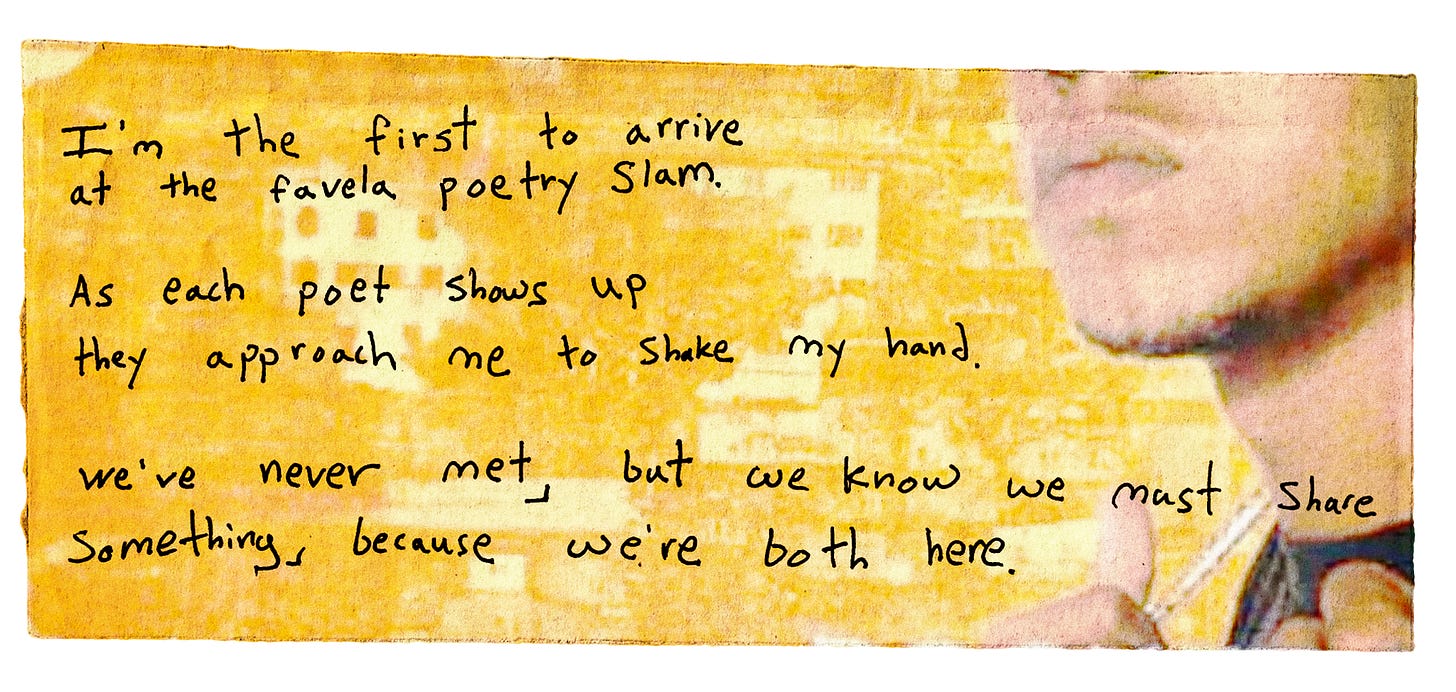 I'm the first to arrive
at the favela poetry slam.
As each poet shows up
they approach me to shake my hand.
we've never met, but we know we must share
something, because we're both here.